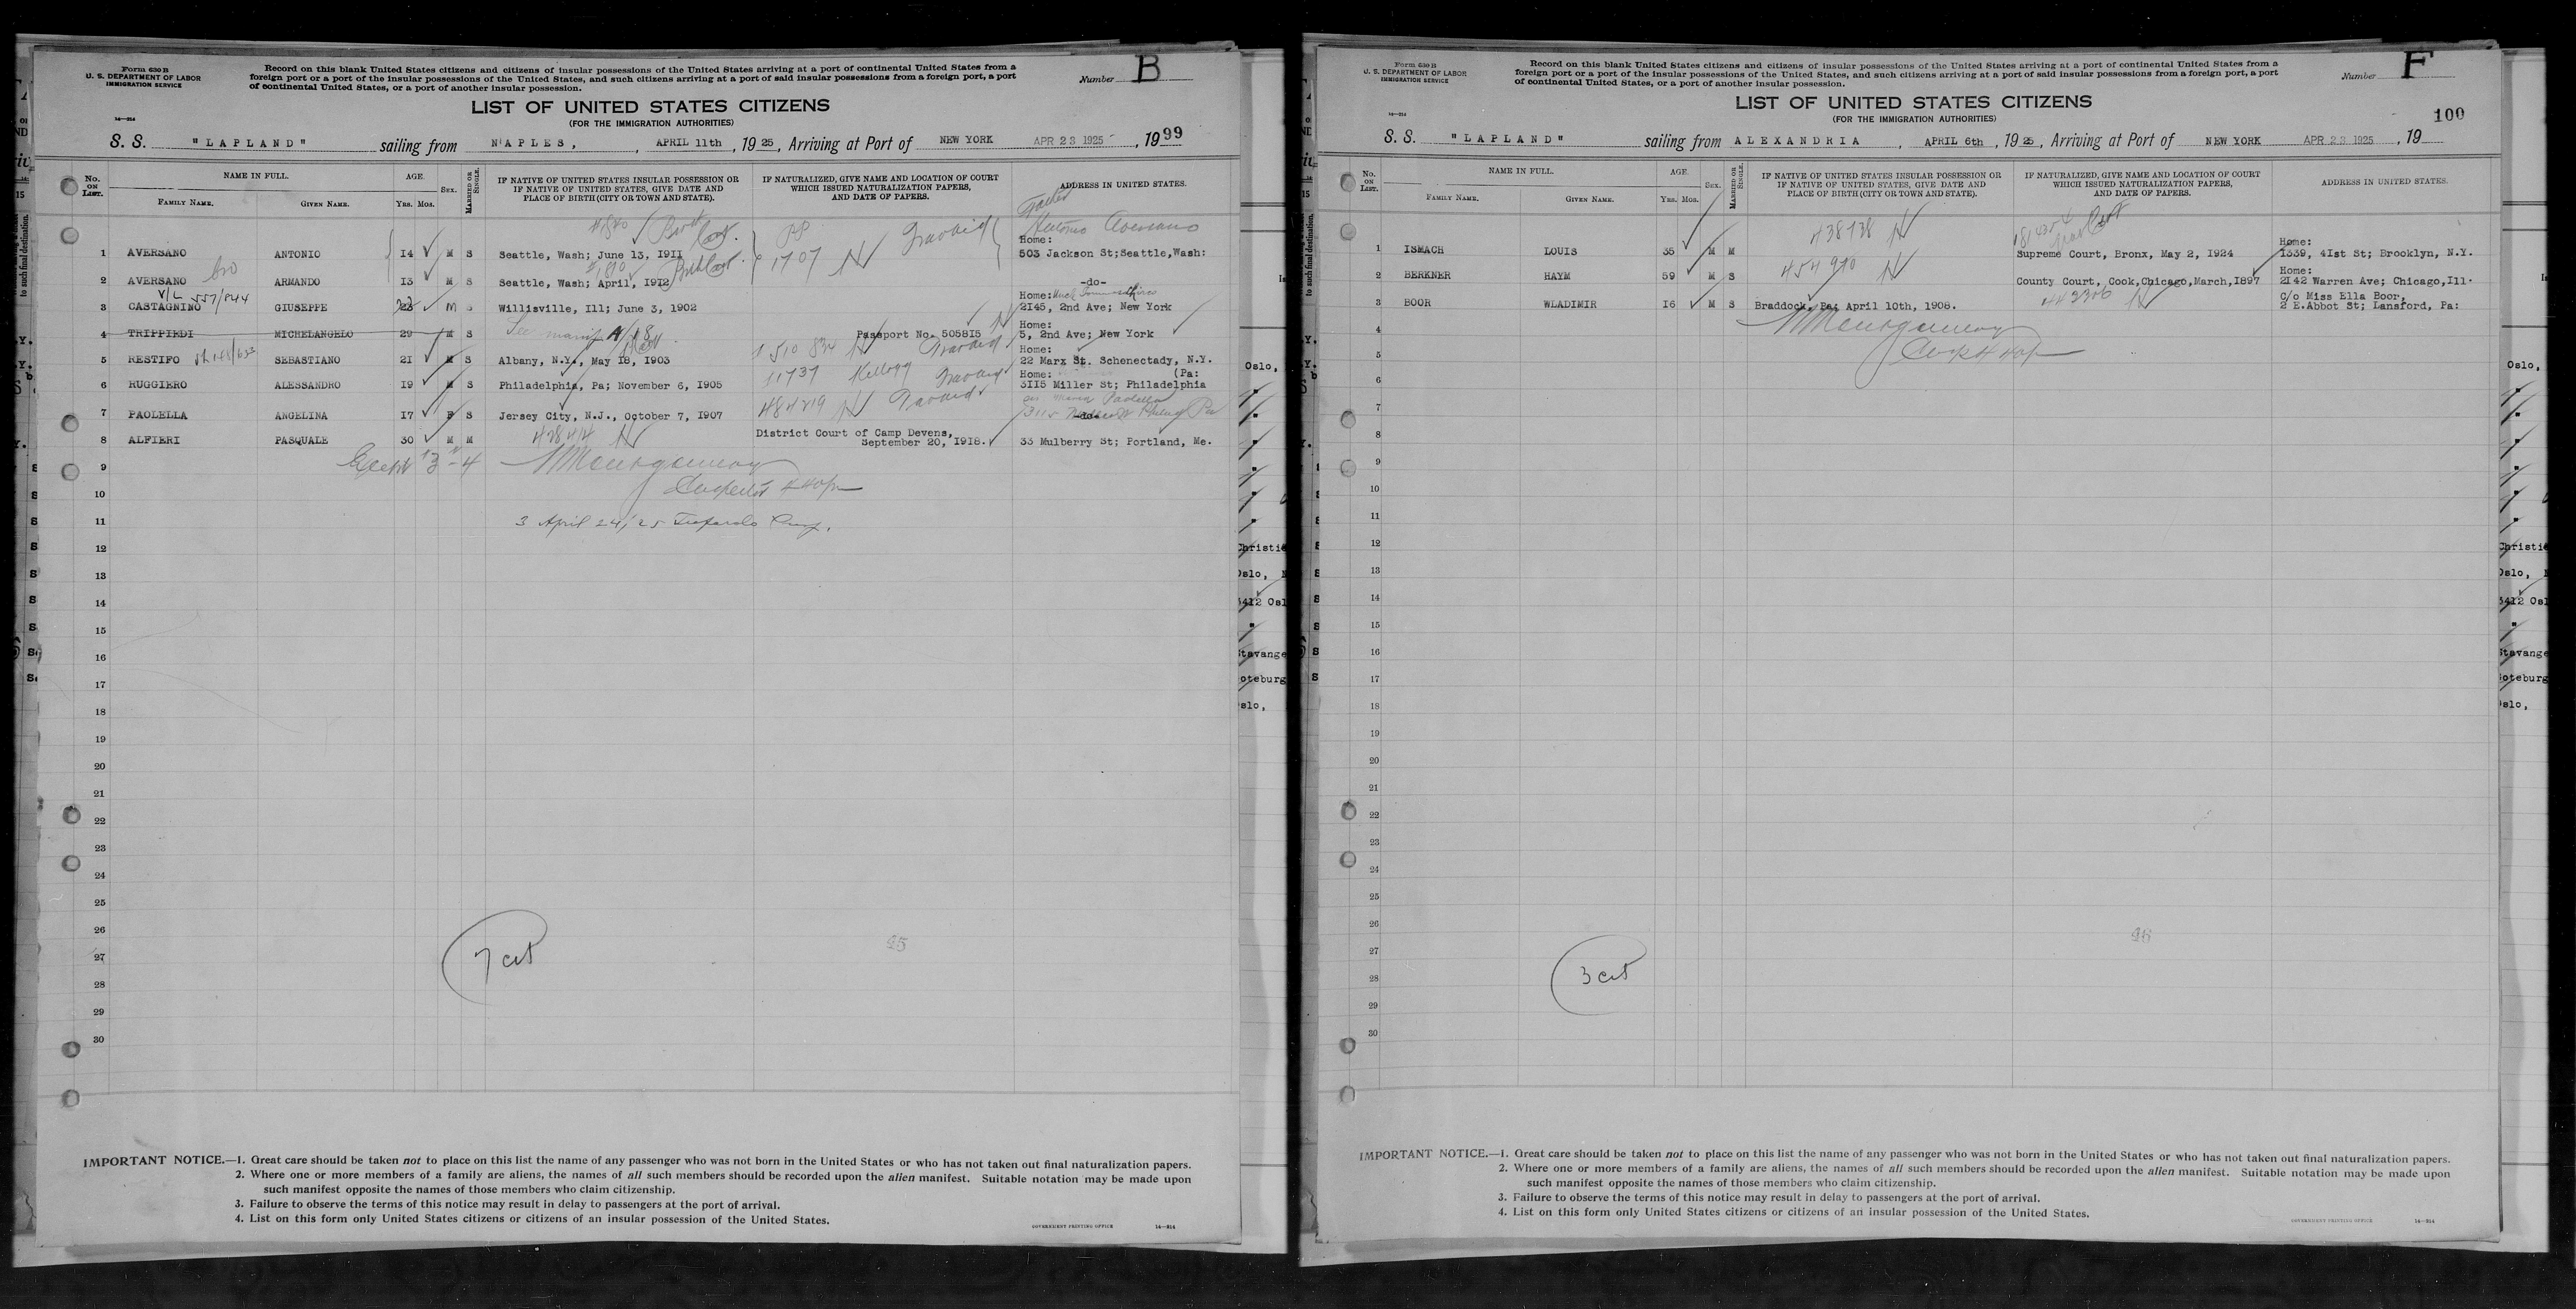 Form 630 B
U. S. DEPARTMENT OF LABOR
IMMIGRATION SERVICE
Record on this blank United States citizens and citizens of insular possessions of the United States arriving at a port of continental United States from a
foreign port or a port of the insular possessions of the United States, and such citizens arriving at a port of said insular possessions from a foreign port, a port
of continental United States, or a port of another insular possession.
Number B
LIST OF UNITED STATES CITIZENS
(FOR THE IMMIGRATION AUTHORITIES)
14—214
S. S. "LAPLAND" sailing from NAPLES, , APRIL 11th , 1925, Arriving at Port of NEW YORK APR 23 1925 , 19 99
No. ON LIST. NAME IN FULL. AGE. SEX. MARRIED OR SINGLE. IF NATIVE OF UNITED STATES INSULAR POSSESSION OR IF NATIVE OF UNITED STATES, GIVE DATE AND PLACE OF BIRTH (CITY OR TOWN AND STATE). IF NATURALIZED, GIVE NAME AND LOCATION OF COURT WHICH ISSUED NATURALIZATION PAPERS, AND DATE OF PAPERS. ADDRESS IN UNITED STATES.
FAMILY NAME. GIVEN NAME. YRS. MOS.
Father
PP
Home:
1 AVERSANO ANTONIO 14 M S Seattle, Wash; June 13, 1911 1707 503 Jackson St;Seattle,Wash:
bro
2 AVERSANO ARMANDO 13 M S Seattle, Wash; April, 1912 -do-
V/L 557/844
Home:
3 CASTAGNINO GIUSEPPE M S Willisville, Ill; June 3, 1902 2145, 2nd Ave; New York
Home:
4 TRIPPIEDI MICHELANGELO 29 M S See manif Passport No. 505815 5, 2nd Ave; New York
510 834
Home:
5 RESTIFO SEBASTIANO 21 M S Albany, N.Y., May 18, 1903 22 Marx St. Schenectady, N.Y.
11737 Kellogg
Home: (Pa:
6 RUGGIERO ALESSANDRO 19 M S Philadelphia, Pa; November 6, 1905 3115 Miller St; Philadelphia
7 PAOLELLA ANGELINA 17 F S Jersey City, N.J., October 7, 1907 484219 -do-
District Court of Camp Devens,
8 ALFIERI PASQUALE 30 M M September 20, 1918. 33 Mulberry St; Portland, Me.
9 Except 3 - 4 Montgomery
10 Inspector 440pm
11 3 April 24, '25
12
13
14
15
16
17
18
19
20
21
22
23
24
25
26 25
27 7 cit
28
29
30
IMPORTANT NOTICE.—1. Great care should be taken not to place on this list the name of any passenger who was not born in the United States or who has not taken out final naturalization papers.
2. Where one or more members of a family are aliens, the names of all such members should be recorded upon the alien manifest. Suitable notation may be made upon
such manifest opposite the names of those members who claim citizenship.
3. Failure to observe the terms of this notice may result in delay to passengers at the port of arrival.
4. List on this form only United States citizens or citizens of an insular possession of the United States.
GOVERNMENT PRINTING OFFICE 14—214
Form 630 B
U. S. DEPARTMENT OF LABOR
IMMIGRATION SERVICE
Record on this blank United States citizens and citizens of insular possessions of the United States arriving at a port of continental United States from a
foreign port or a port of the insular possessions of the United States, and such citizens arriving at a port of said insular possessions from a foreign port, a port
of continental United States, or a port of another insular possession.
Number F
LIST OF UNITED STATES CITIZENS
100
(FOR THE IMMIGRATION AUTHORITIES)
14—214
S. S. "LAPLAND" sailing from ALEXANDRIA , APRIL 6th , 1925, Arriving at Port of NEW YORK APR 23 1925 , 19
No. ON LIST. NAME IN FULL. AGE. SEX. MARRIED OR SINGLE. IF NATIVE OF UNITED STATES INSULAR POSSESSION OR IF NATIVE OF UNITED STATES, GIVE DATE AND PLACE OF BIRTH (CITY OR TOWN AND STATE). IF NATURALIZED, GIVE NAME AND LOCATION OF COURT WHICH ISSUED NATURALIZATION PAPERS, AND DATE OF PAPERS. ADDRESS IN UNITED STATES.
FAMILY NAME. GIVEN NAME. YRS. MOS.
438738
Home:
1 ISMACH LOUIS 35 M M Supreme Court, Bronx, May 2, 1924 1339, 41st St; Brooklyn, N.Y.
454990
Home:
2 BERKNER HAYM 59 M S County Court, Cook,Chicago,March,1897 2142 Warren Ave; Chicago,Ill.
443306
C/o Miss Ella Boor,
3 BOOR WLADIMIR 16 M S Braddock, Pa; April 10th, 1908. 2 E.Abbot St; Lansford, Pa:
4 Montgomery
5 Insp 440pm
6
7
8
9
10
11
12
13
14
15
16
17
18
19
20
21
22
23
24
25
26 26
27
28 3 cit
29
30
IMPORTANT NOTICE.—1. Great care should be taken not to place on this list the name of any passenger who was not born in the United States or who has not taken out final naturalization papers.
2. Where one or more members of a family are aliens, the names of all such members should be recorded upon the alien manifest. Suitable notation may be made upon
such manifest opposite the names of those members who claim citizenship.
3. Failure to observe the terms of this notice may result in delay to passengers at the port of arrival.
4. List on this form only United States citizens or citizens of an insular possession of the United States.
GOVERNMENT PRINTING OFFICE 14—214